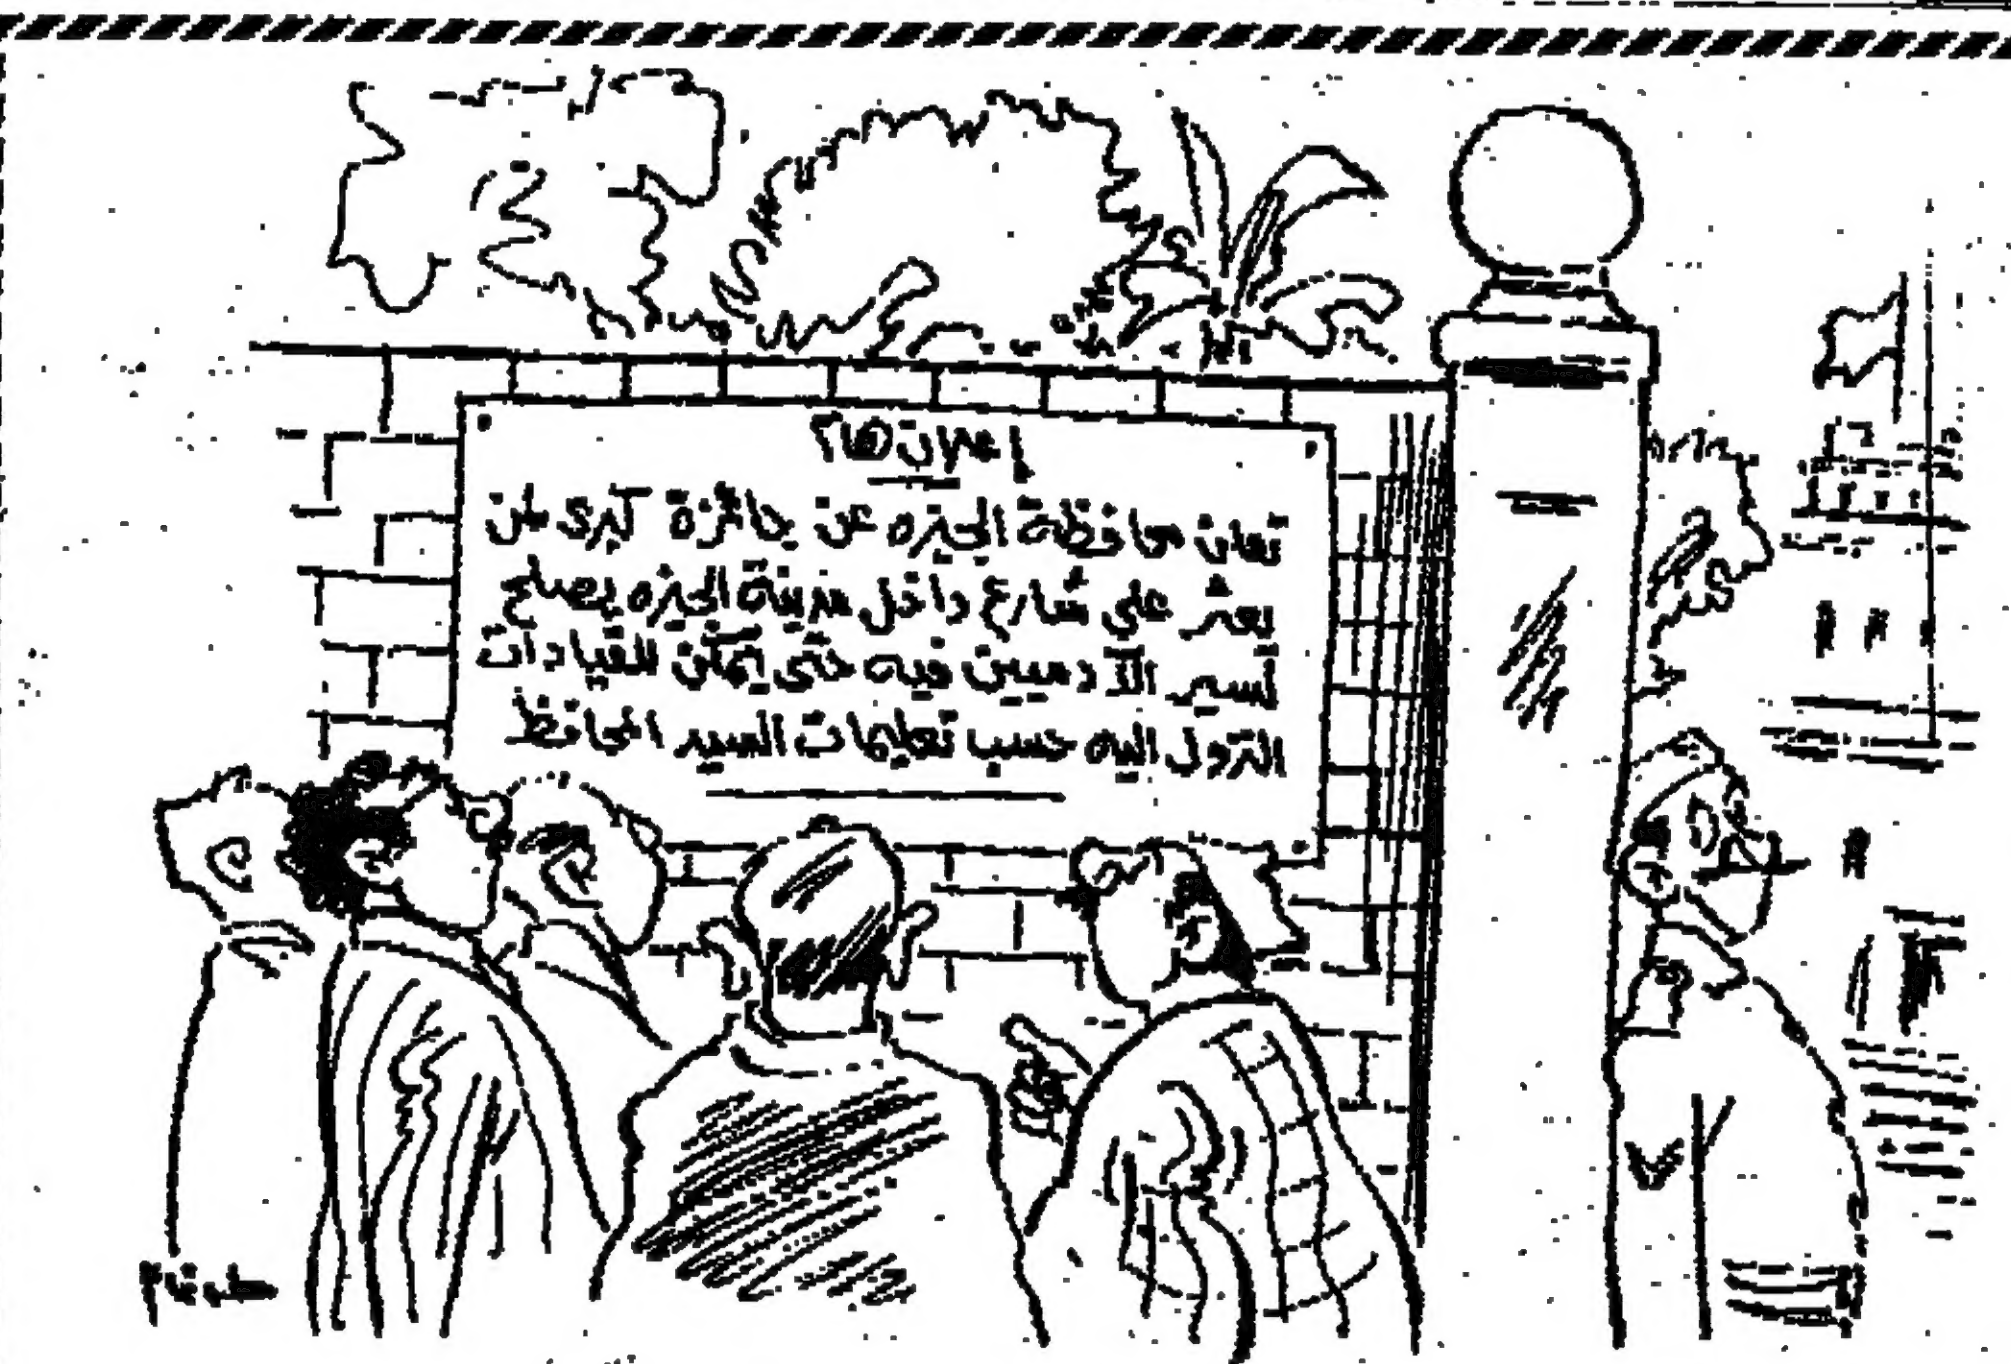 إعلان هام
تعلن محافظة الجيزه عن جائزة كبرى لمن
يعثر على شارع داخل مدينة الجيزه يصلح
لسير الآدميين فيه حتى يمكن للقيادات
النزول اليه حسب تعليمات السيد المحافظ